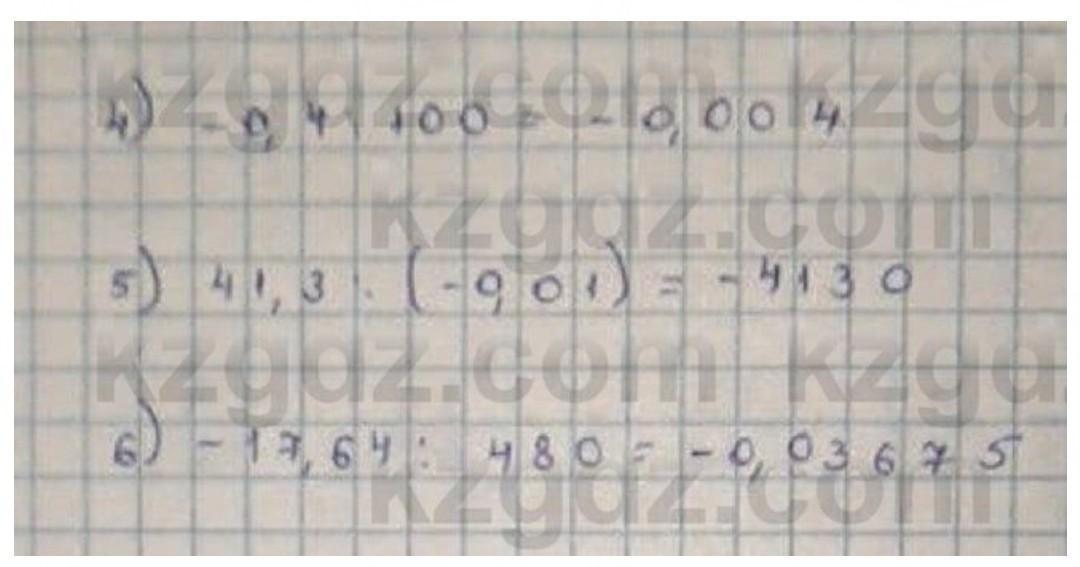 kzgdz.com kzgd
4) -0,4 : 100 = -0,004
kzgdz.com
5) 41,3 : (-0,01) = -4130
kzgdz.com kzgd
6) -17,64 : 480 = -0,03675
kzgdz.com